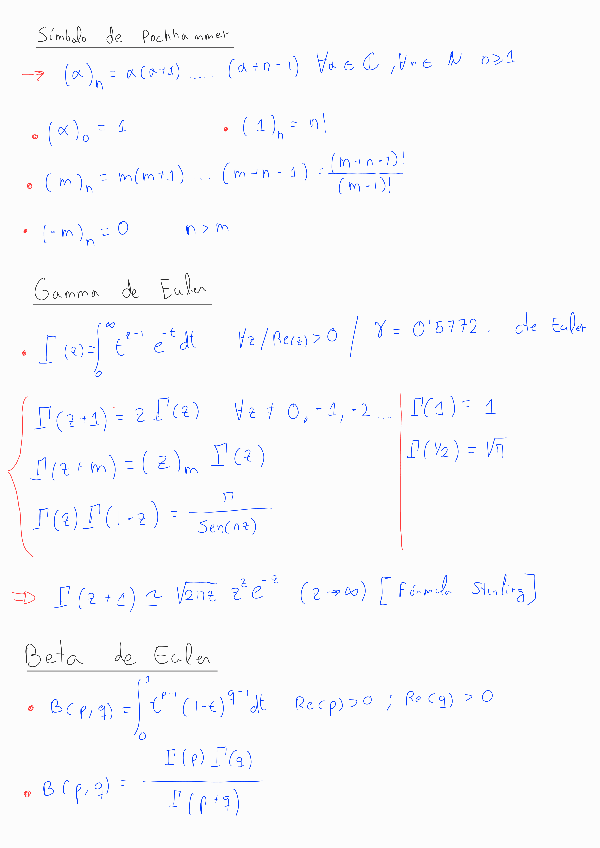 Símbolo de Pochhammer
→ (α)ₙ = α(α+1) ..... (α+n-1) ∀α ∈ ℂ, ∀n ∈ ℕ n≥1
• (α)₀ = 1 • (1)ₙ = n!
• (m)ₙ = m(m+1) ... (m+n-1) = (m+n-1)! / (m-1)!
• (-m)ₙ = 0 n>m
Gamma de Euler
• Γ(z) = ∫₀^∞ t^(z-1) e^(-t) dt ∀z / Re(z)>0 / γ = 0'5772.. de Euler
Γ(z+1) = z Γ(z) ∀z ≠ 0, -1, -2 ... | Γ(1) = 1
Γ(z+m) = (z)ₘ Γ(z) | Γ(1/2) = √π
Γ(z) Γ(1-z) = π / Sen(πz)
⇒ Γ(z+1) ≃ √2πz z^z e^(-z) (z→∞) [Fórmula Stirling]
Beta de Euler
• B(p,q) = ∫₀^1 t^(p-1) (1-t)^(q-1) dt Re(p)>0 ; Re(q)>0
• B(p,q) = Γ(p) Γ(q) / Γ(p+q)